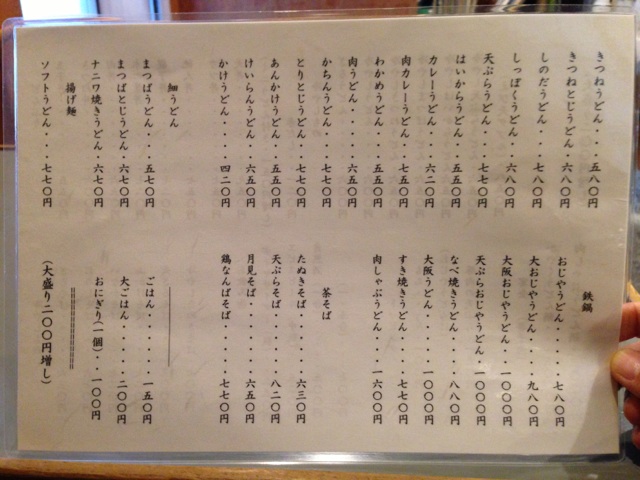 きつねうどん・・・五八〇円
きつねとじうどん・六八〇円
しのだうどん・・・七八〇円
しっぽくうどん・・六八〇円
天ぷらうどん・・・七七〇円
はいからうどん・・五五〇円
カレーうどん・・・六二〇円
肉カレーうどん・・七五〇円
わかめうどん・・・五五〇円
肉うどん・・・・・六五〇円
かちんうどん・・・七七〇円
とりとじうどん・・七七〇円
あんかけうどん・・五五〇円
けいらんうどん・・六五〇円
かけうどん・・・・四二〇円
細うどん
まつばうどん・・・五七〇円
まつばとじうどん・六七〇円
ナニワ焼きうどん・六七〇円
揚げ麺
ソフトうどん・・・七七〇円
鉄鍋
おじやうどん・・・・・七八〇円
大おじやうどん・・・・九八〇円
大阪おじやうどん・・・一〇〇〇円
天ぷらおじやうどん・一〇〇〇円
なべ焼きうどん・・・・八八〇円
大阪うどん・・・・・一〇〇〇円
すき焼きうどん・・・・七七〇円
肉しゃぶうどん・・・一六〇〇円
茶そば
たぬきそば・・・・・六三〇円
天ぷらそば・・・・・八二〇円
月見そば・・・・・・六五〇円
鶏なんばそば・・・・・七七〇円
ごはん・・・・・・・一五〇円
大ごはん・・・・・・二〇〇円
おにぎり(一個)・・一〇〇円
(大盛り二〇〇円増し)